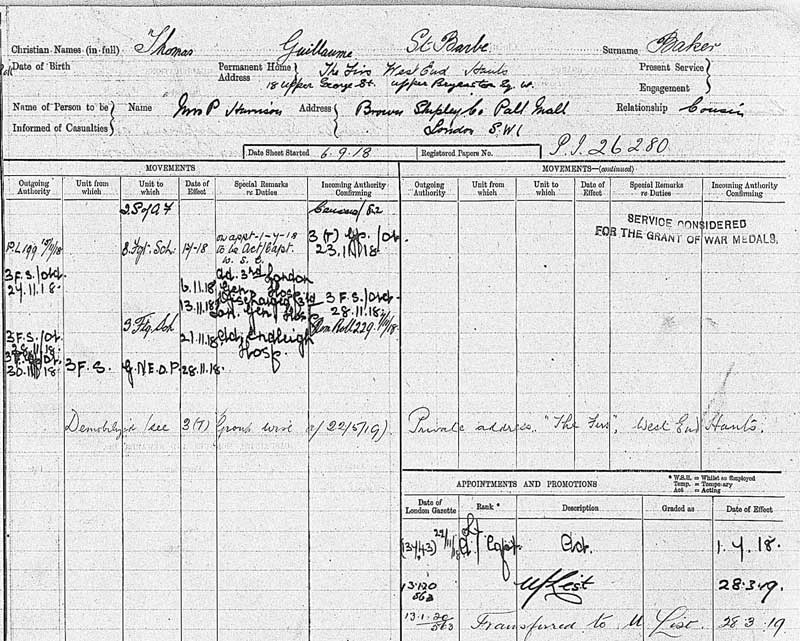 Christian Names (in full) Thomas Guillaume St Barbe Surname Baker
Date of Birth Permanent Home Address The Firs West End Hants
18 Upper George St. Upper Bryanston Sq. W.
Present Service
Engagement
Name of Person to be Informed of Casualties Name Mrs P Harrison Address Brown Shipley Co Pall Mall London S.W1 Relationship Cousin
Date Sheet Started 6.9.18 Registered Papers No. P.I. 26280
MOVEMENTS
Outgoing Authority Unit from which Unit to which Date of Effect Special Remarks re Duties Incoming Authority Confirming
2 S of A F Census/
P.L 199 8. Fgt. Sch. on appt. 1-4-18 to be Act/Capt. w.s.e. 3 (T) Gp. /Or. 23.11.18
3 F.S./Ord. 24.11.18 6.11.18 ad. 3rd London Gen Hosp.
13.11.18 Discharged 3rd Lon. Gen Hosp 3 F.S./Ord. 28.11.18
3 Ftg. Sch 21.11.18 Hosp. Nom Roll 229
3 F.S./Or. 28.11.18
30.11.18 3 F.S. 28.11.18.
Demobilized /see 3(T) Group wire 22/5/19).
MOVEMENTS—(continued)
Outgoing Authority Unit from which Unit to which Date of Effect Special Remarks re Duties Incoming Authority Confirming
SERVICE CONSIDERED
FOR THE GRANT OF WAR MEDALS.
Private address "The Firs", West End Hants.
APPOINTMENTS AND PROMOTIONS
* W.S.E. = Whilst so Employed
Temp. = Temporary
Act = Acting
Date of London Gazette Rank * Description Graded as Date of Effect
(13443) Lt a/ Capt. 1.4.18.
13.1.20 563 U/List 28.3.19.
13.1.20 563 Transferred to U List. 28 3 19